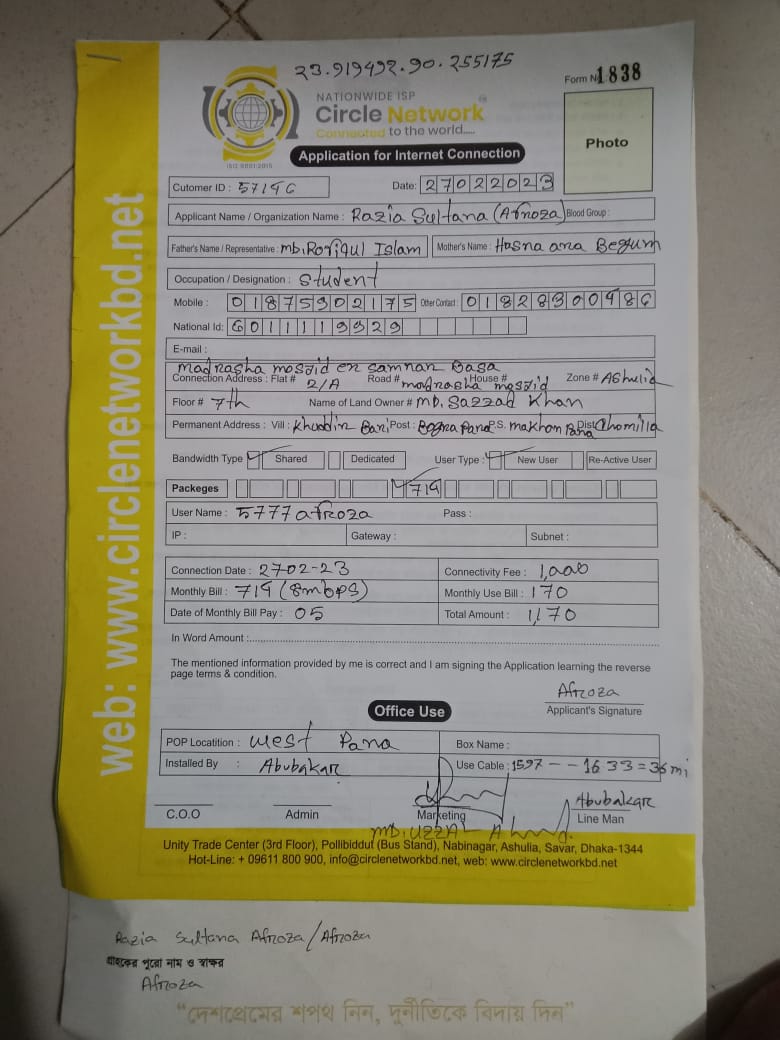 23.919492.90.255175
Form No 1838
NATIONWIDE ISP
Circle Network
Connected to the world.....
ISO 9001:2015
Photo
Application for Internet Connection
Cutomer ID : 57196
Date: 27022023
Applicant Name / Organization Name : Razia Sultana (Afroza) Blood Group :
Father's Name / Representative : Islam Mother's Name : Hasna ana Begum
Occupation / Designation : Student
Mobile : 01875902175 Other Contact : 01828300486
National Id: 6011119929
E-mail :
madrasha mosjid en samnan Basa
Connection Address : Flat # 2/A Road # madrasha mosjid House # Zone # Ashulia
Floor # 7th Name of Land Owner # MD. Sazzad Khan
Permanent Address : Vill : Khuddin Bari Post : P.S. Dist
Bandwidth Type Shared Dedicated User Type : New User Re-Active User
Packeges 719
User Name : 5777afroza Pass :
IP : Gateway : Subnet :
Connection Date : 2702-23 Connectivity Fee : 1,000
Monthly Bill : 719 (8mbps) Monthly Use Bill : 170
Date of Monthly Bill Pay : 05 Total Amount : 1,170
In Word Amount :
The mentioned information provided by me is correct and I am signing the Application learning the reverse
page terms & condition.
Afroza
Applicant's Signature
Office Use
POP Locatition : West Pana Box Name :
Installed By : Abubakar Use Cable : 1597 -- 1633 = 36 mi
Abubakar
C.O.O Admin Marketing Line Man
Unity Trade Center (3rd Floor), Pollibiddut (Bus Stand), Nabinagar, Ashulia, Savar, Dhaka-1344
Hot-Line: + 09611 800 900, info@circlenetworkbd.net, web: www.circlenetworkbd.net
web: www.circlenetworkbd.net
Razia Sultana Afroza/Afroza
গ্রাহকের পুরো নাম ও স্বাক্ষর
Afroza
“দেশপ্রেমের শপথ নিন, দুর্নীতিকে বিদায় দিন”